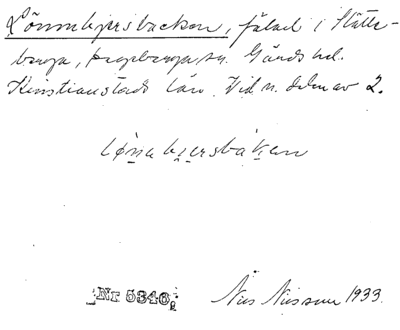 Lönnebjersbacken, fälad i Slätte-
berga, Degeberga sn. Gärds hd.
Kristianstads län. Vid n. delen av 2.
lønabjersbakan
Nr 5346.
Nils Nilsson 1933.